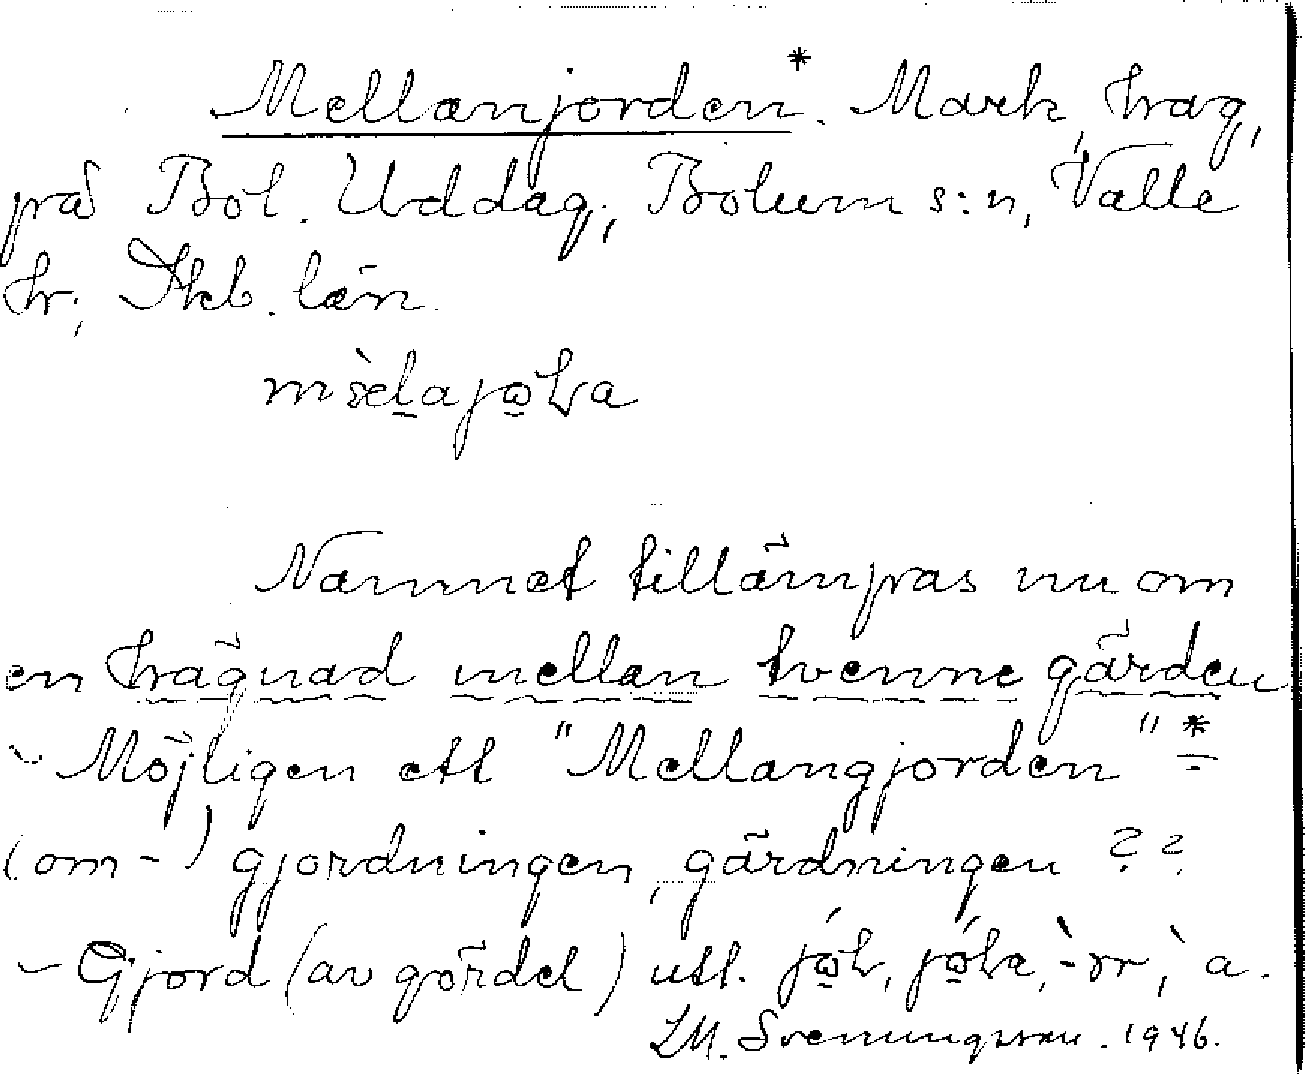 Mellanjorden*. Mark, hag,
på Bol. Uddag; Bolum s:n, Valle
hr, Skb. län.
Namnet tillämpas nu om
en hägnad mellan tvenne gärden
- Möjligen ett "Mellangjorden" *
(om-) gjordningen, gärdningen ??
- Gjord (av gördel) utt.
LM. Svenungsson. 1946.